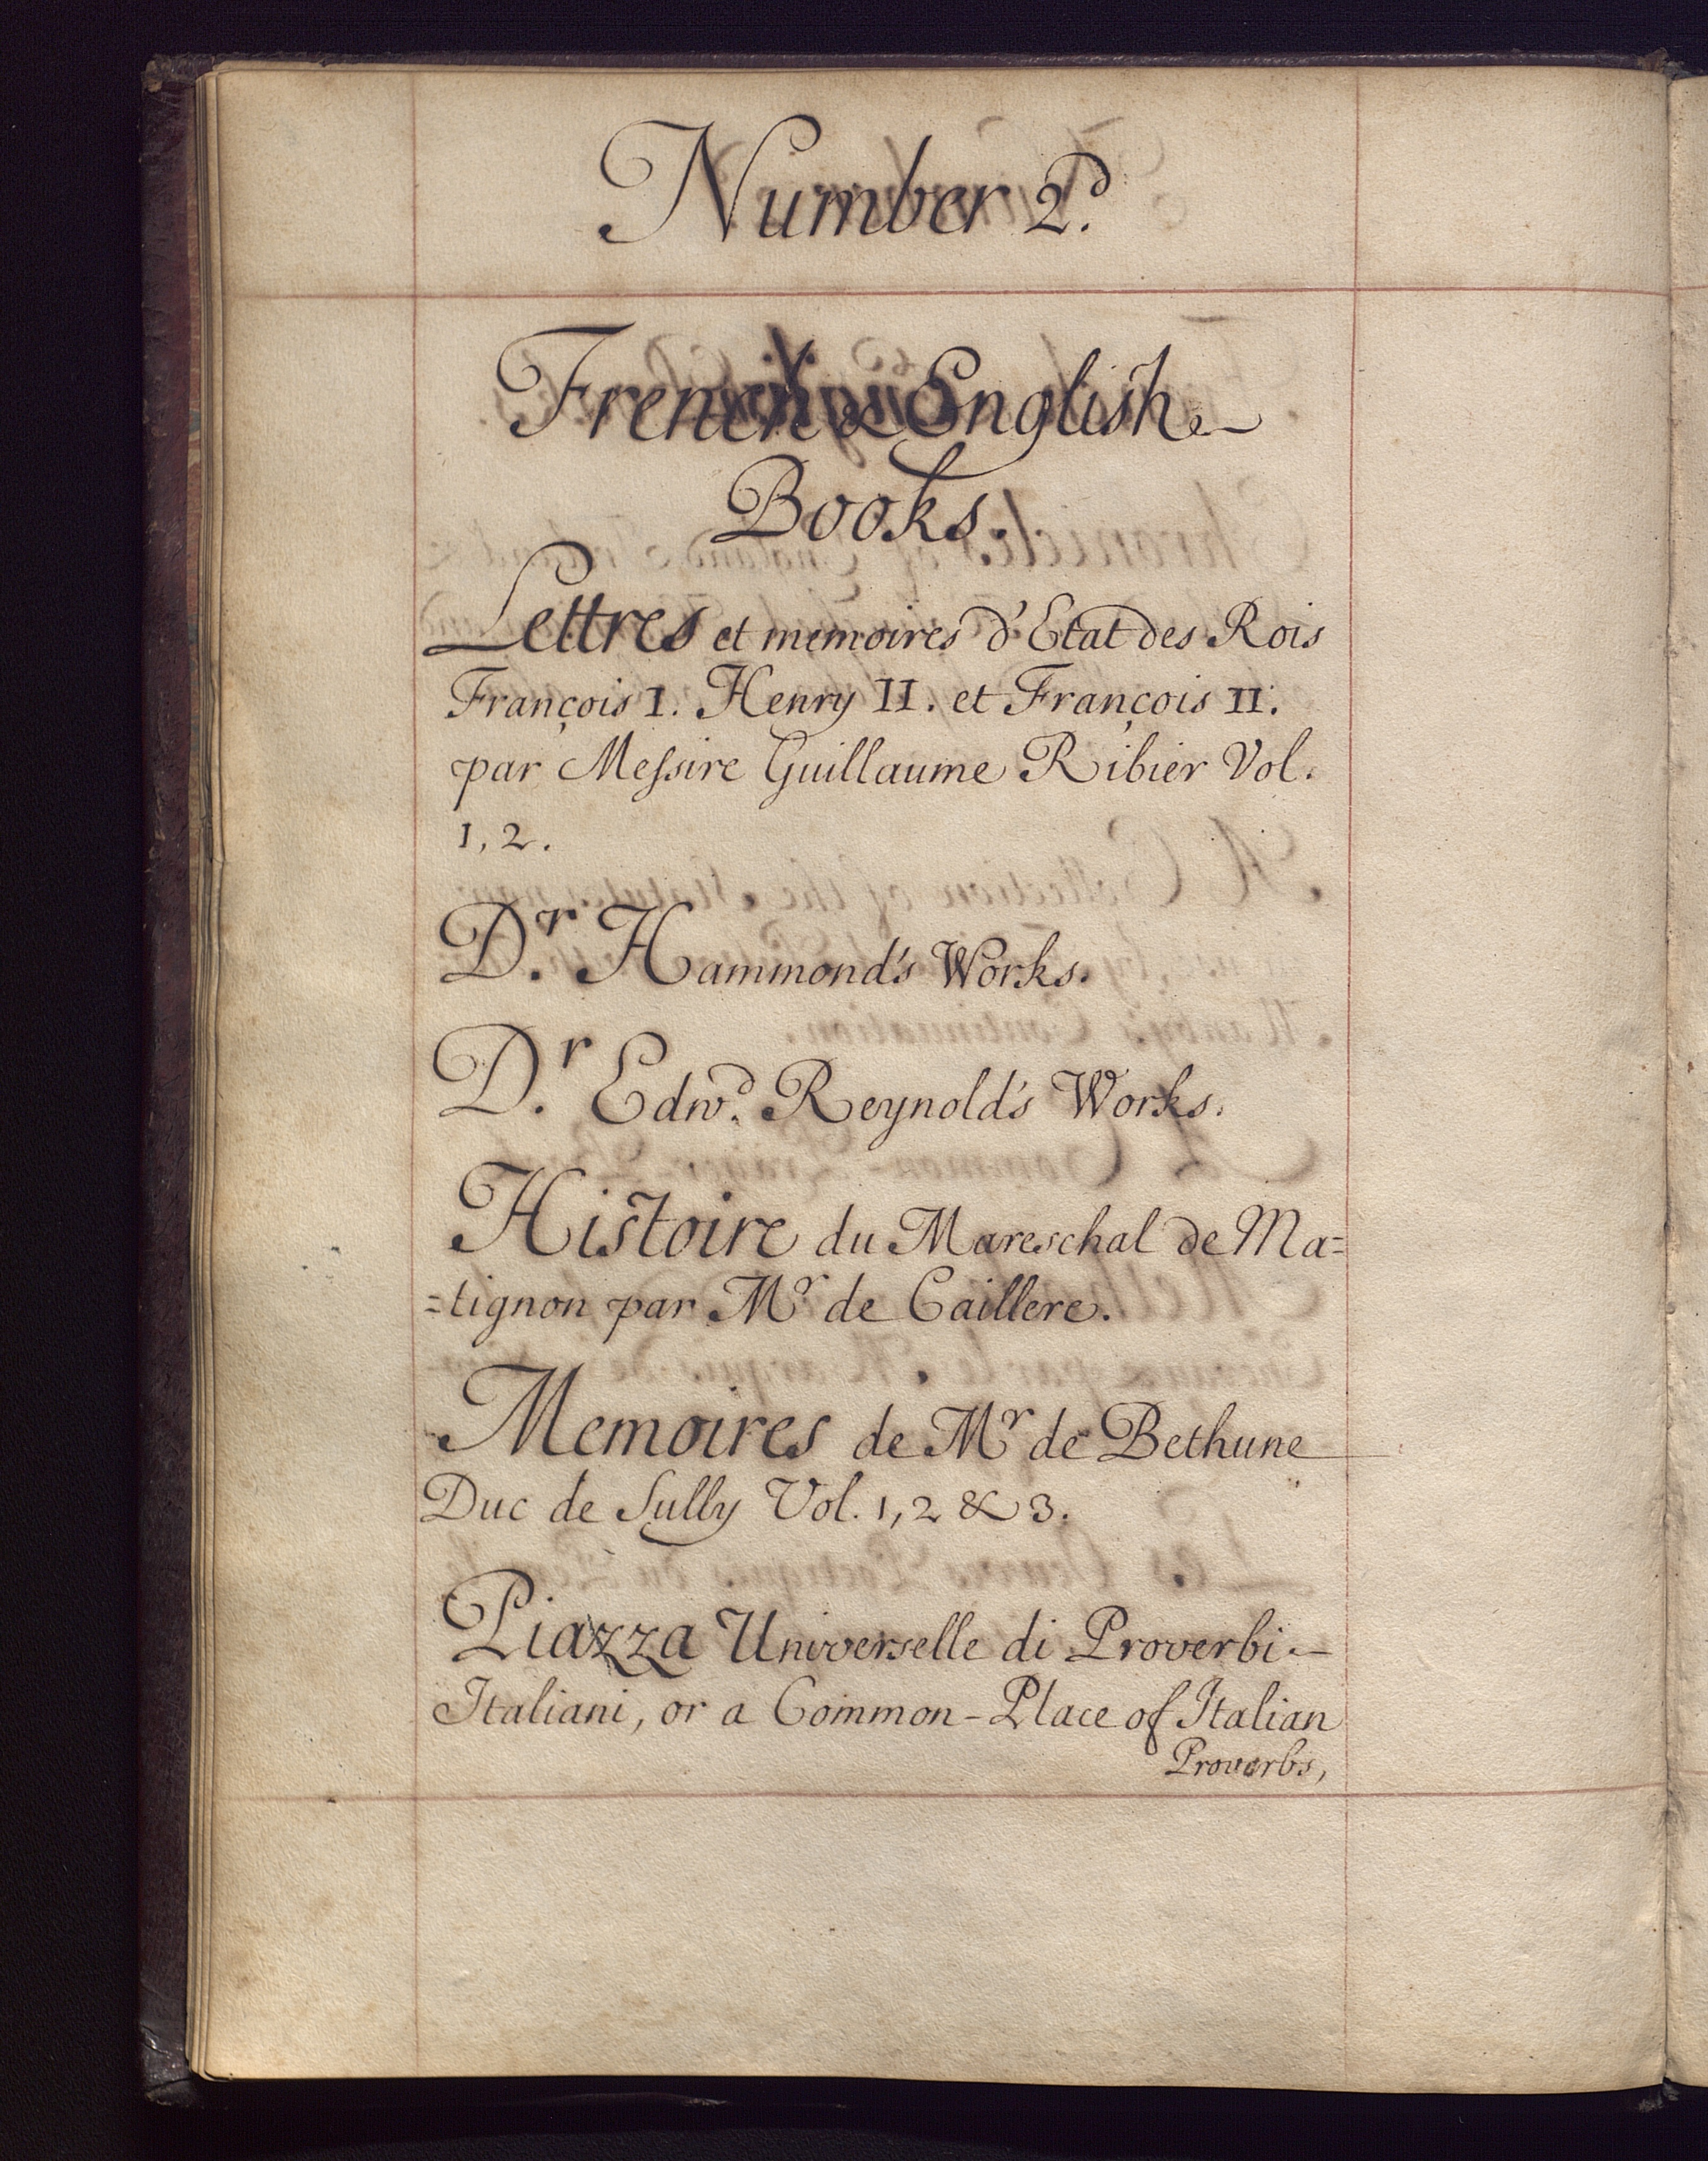 Number 2d.
French & English
Books.
Lettres et memoires d'Etat des Rois
François I. Henry II. et François II.
par Messire Guillaume Ribier Vol.
1, 2.
Dr. Hammond's Works.
Dr. Edwd. Reynold's Works.
Histoire du Mareschal de Ma=
=tignon par Mr de Caillere.
Memoires de Mr de Bethune
Duc de Sully Vol. 1, 2 & 3.
Piazza Universelle di Proverbi
Italiani, or a Common-Place of Italian
Proverbs,